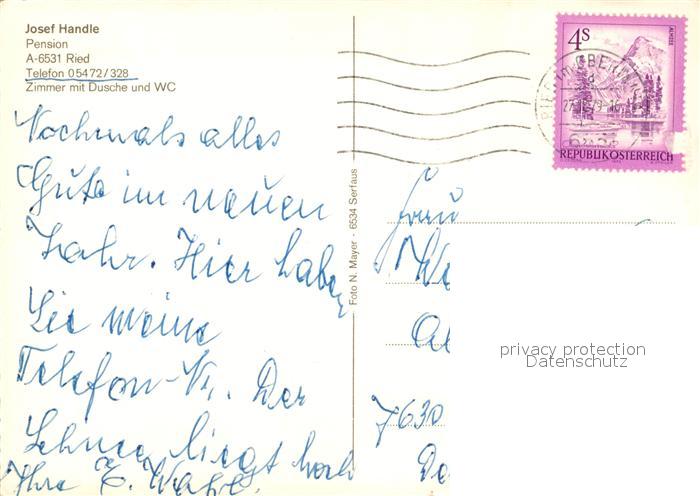 Josef Handle
Pension
A-6531 Ried
Telefon 05472/328
Zimmer mit Dusche und WC
Nochmals alles
Gute im neuen
Jahr. Hier haben
Sie meine
Telefon-Nr. Der
Schnee liegt hoch
Ihre E.
Foto N. Mayer - 6534 Serfaus
4S
ALMSEE
REPUBLIK ÖSTERREICH
Frau
7630
privacy protection
Datenschutz